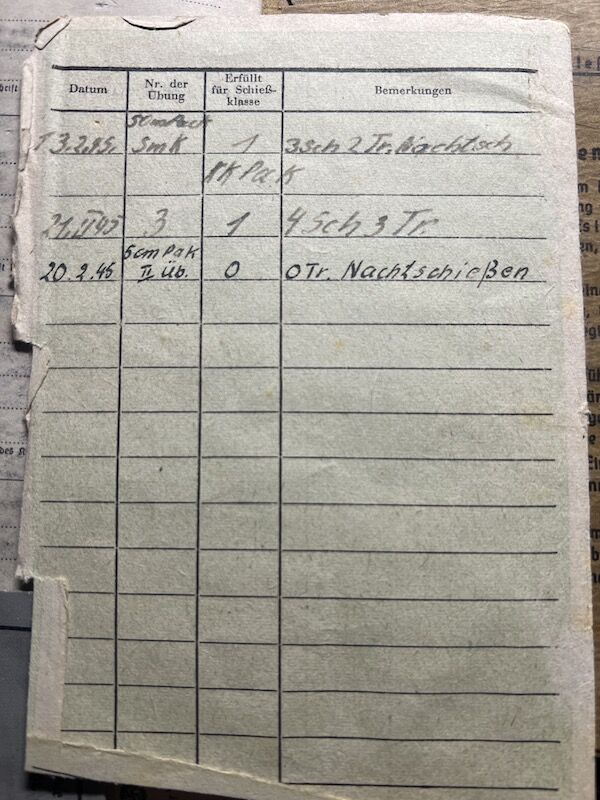 Datum
Nr. der
Übung
Erfüllt
für Schieß-
klasse
Bemerkungen
5cm Pack
3.2.45. SmK 1 3 Sch 2 Tr. Nachtsch
KK Pak
21.II 45 3 1 4 Sch 3 Tr.
5cm Pak
20.2.45 II Üb. 0 0 Tr. Nachtschießen